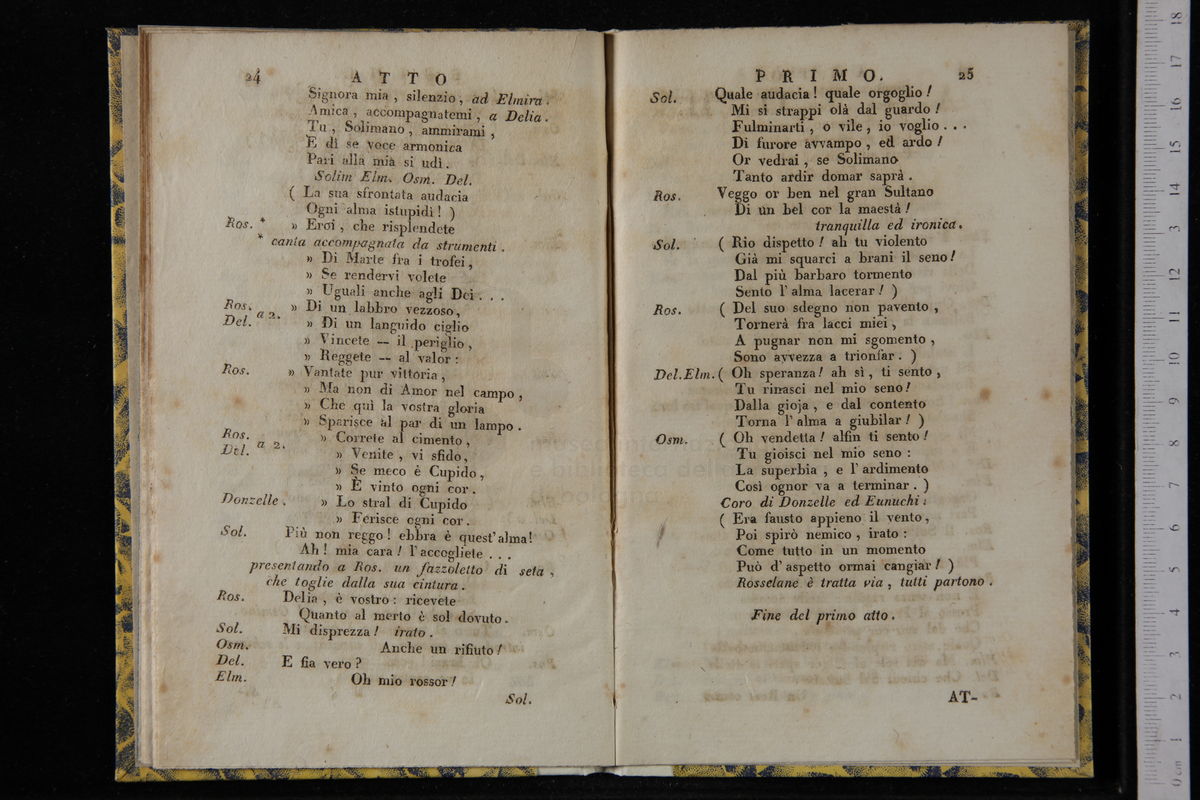 24 ATTO
Signora mia , silenzio, ad Elmira.
Amica , accompagnatemi , a Delia.
Tu , Solimano , ammirami ,
E dì se voce armonica
Pari alla mia si udì.
Solim Elm. Osm. Del.
( La sua sfrontata audacia
Ogni alma istupidì ! )
Ros. * » Eroi , che risplendete
* canta accompagnata da strumenti .
» Di Marte fra i trofei,
» Se rendervi volete
» Uguali anche agli Dei . . .
Ros. Del. a 2. » Di un labbro vezzoso,
» Di un languido ciglio
» Vincete — il periglio,
» Reggete — al valor :
Ros. » Vantate pur vittoria,
» Ma non di Amor nel campo ,
» Che quì la vostra gloria
» Sparisce al par di un lampo .
Ros. Del. a 2. » Correte al cimento ,
» Venite , vi sfido,
» Se meco è Cupido,
» È vinto ogni cor .
Donzelle . » Lo stral di Cupido
» Ferisce ogni cor.
Sol. Più non reggo ! ebbra è quest' alma!
Ah ! mia cara ! l' accogliete . . .
presentando a Ros. un fazzoletto di seta ,
che toglie dalla sua cintura .
Ros. Delia , è vostro : ricevete
Quanto al merto è sol dovuto.
Sol. Mi disprezza ! irato .
Osm. Anche un rifiuto !
Del. E fia vero ?
Elm. Oh mio rossor !
Sol.
PRIMO. 25
Sol. Quale audacia ! quale orgoglio !
Mi si strappi olà dal guardo !
Fulminarti , o vile , io voglio . . .
Di furore avvampo , ed ardo !
Or vedrai , se Solimano
Tanto ardir domar saprà .
Ros. Veggo or ben nel gran Sultano
Di un bel cor la maestà !
tranquilla ed ironica.
Sol. ( Rio dispetto ! ah tu violento
Già mi squarci a brani il seno !
Dal più barbaro tormento
Sento l' alma lacerar ! )
Ros. ( Del suo sdegno non pavento ,
Tornerà fra lacci miei ,
A pugnar non mi sgomento ,
Sono avvezza a trionfar . )
Del. Elm. ( Oh speranza ! ah sì , ti sento ,
Tu rinasci nel mio seno !
Dalla gioja , e dal contento
Torna l' alma a giubilar ! )
Osm. ( Oh vendetta ! alfin ti sento !
Tu gioisci nel mio seno :
La superbia , e l' ardimento
Così ognor va a terminar . )
Coro di Donzelle ed Eunuchi :
( Era fausto appieno il vento ,
Poi spirò nemico , irato :
Come tutto in un momento
Può d' aspetto ormai cangiar ! )
Rosselane è tratta via , tutti partono .
Fine del primo atto .
AT-